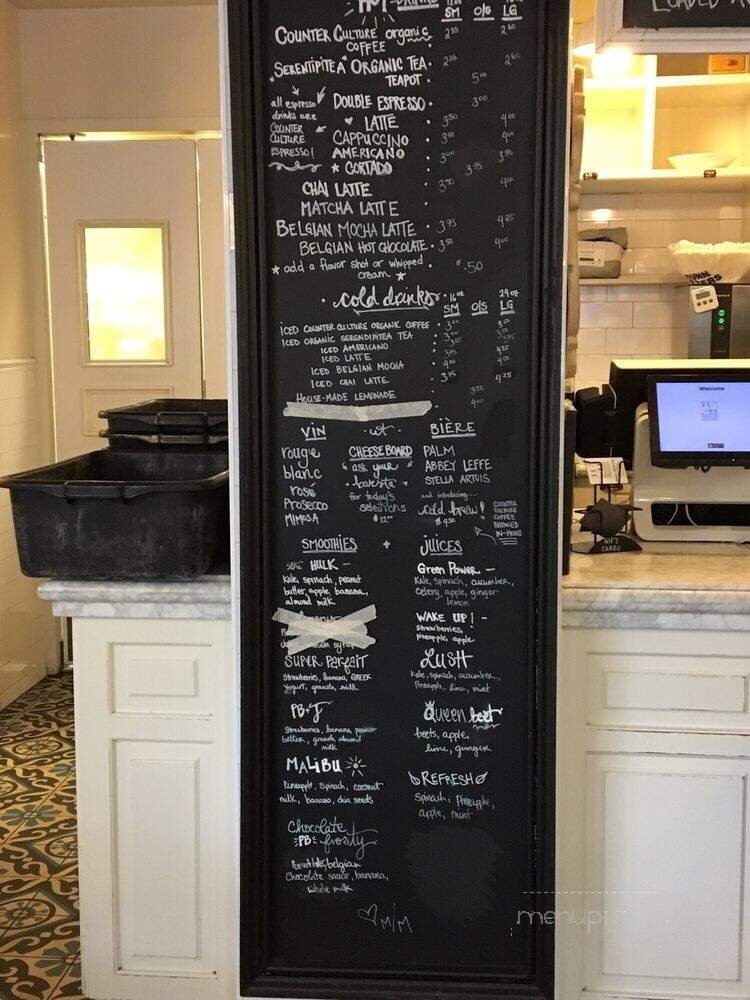 HOT DRINKS
12oz
SM O/S LG
COUNTER CULTURE organic COFFEE 2 60
SERENTIPITEA ORGANIC TEA 2 60
TEAPOT 5 00
all espresso drinks are COUNTER CULTURE ESPRESSO!
DOUBLE ESPRESSO 3 00
LATTE 3 50 4 00
CAPPUCCINO 3 50 4 00
AMERICANO 3 00 3 50
CORTADO 3 75
CHAI LATTE 3 50 4 00
MATCHA LATTE
BELGIAN MOCHA LATTE 3 95 4 25
BELGIAN HOT CHOCOLATE 3 50 4 00
add a flavor shot or whipped
cream .50
cold drinks
16 oz 24 oz
SM O/S LG
ICED COUNTER CULTURE ORGANIC COFFEE
ICED ORGANIC SERENDIPITEA TEA
ICED AMERICANO
ICED LATTE
ICED BELGIAN MOCHA
ICED CHAI LATTE 3 95 4 25
HOUSE-MADE LEMONADE 3 50
4 00
VIN et BIÈRE
rouge
blanc
rosé
Prosecco
MIMOSA
CHEESEBOARD
"ask your
barista"
for today's
selections
$12
PALM
ABBEY LEFFE
STELLA ARTOIS
and introducing...
cold brew!
$4.50
COUNTER
CULTURE
COFFEE
BREWED
IN-HOUSE
SMOOTHIES + JUICES
the HULK -
Kale, spinach, peanut
butter, apple, banana,
almond milk
SUPER Parfait
Strawberries, banana, GREEK
Yogurt, granola, milk
PB+J
Strawberries, banana, peanut
butter, granola, almond
milk
MALIBU
Pineapple, spinach, coconut
milk, banana, chia seeds
Chocolate
PB frosty
Peanut butter, belgian
Chocolate sauce, banana,
whole milk
Green Power -
Kale, spinach, cucumber,
Celery, apple, ginger
lemon
WAKE UP! -
Strawberries,
pineapple, apple
LUSH
Kale, spinach, cucumber,
Pineapple, lime, mint
Queen beet
beets, apple,
lime, ginger
REFRESH
Spinach, Pineapple,
apple, mint
M/M
LOADED
Welcome
GIFT
CARDS
menupix